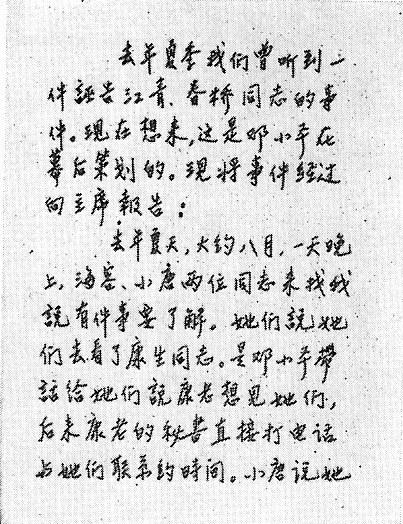 去年夏季我们曾听到一
件诬告江青、春桥同志的事
件。现在想来,这是邓小平在
幕后策划的。现将事件经过
向主席報告:
去年夏天,大约八月,一天晚
上,海容、小唐两位同志来找我
説有件事要了解。她们説她
们去看了康生同志。是邓小平带
話给她们説康老想見她们,
后来康老的秘书直接打电话
与她们联系约时间。小唐説她